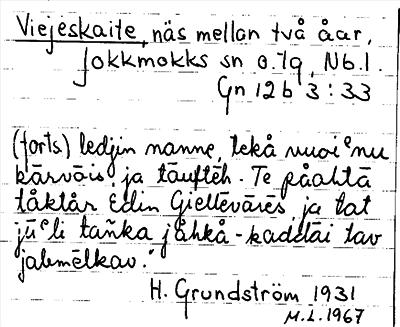 Viejeskaite, näs mellan två åar,
Jokkmokks sn o.lq, Nb.l.
Gn 12 b 3:33
(forts) ledjin manne, tekå vuoiᵉnu
kārvāis ja tāuftēh. Te påahtā
tåktår Edin Giellēvārēs, ja tat
jūᵉli taŋka jåhkå-kaddai tav
jabmēlkav."
H. Grundström 1931
M.L. 1967